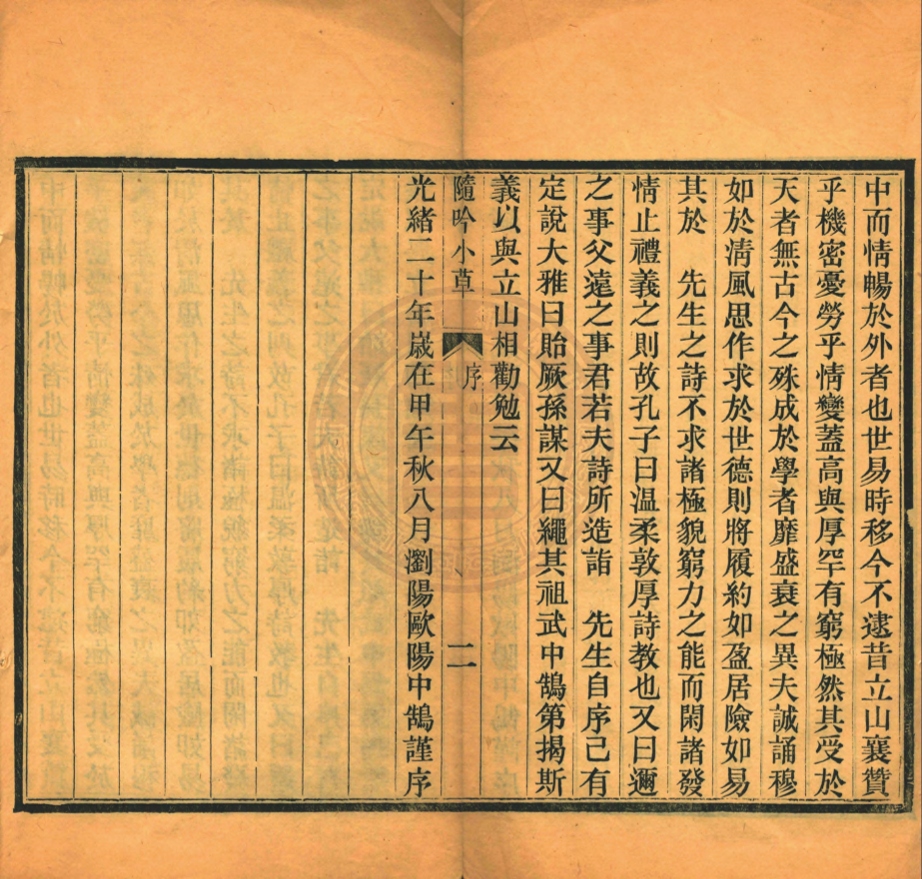 中而情暢於外者也世易時移今不逮昔立山襄贊
乎機密憂勞乎情變蓋高與厚罕有窮極然其受於
天者無古今之殊成於學者靡盛衰之異夫誠誦穆
如於淸風思作求於世德則將履約如盈居險如易
其於　先生之詩不求諸極貌窮力之能而閑諸發
情止禮義之則故孔子曰温柔敦厚詩教也又曰邇
之事父遠之事君若夫詩所造詣　先生自序已有
定說大雅曰貽厥孫謀又曰繩其祖武中鵠第揭斯
義以與立山相勸勉云
隨吟小草　序　二
光緒二十年嵗在甲午秋八月瀏陽歐陽中鵠謹序